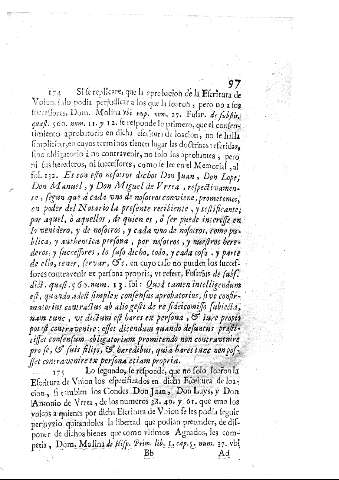 97
174 Si se replicare, que la aprobacion de la Escritura de
Vnion solo podia perjudicar a los que la loaron, pero no a sus
successores, Dom. Molina vbi cap. num. 27. Fusar. de substit.
quæst. 560. num. 11. y 12. se responde lo primero, que el consen-
timiento aprobatorio en dicha escritura de loacion, no se halla
simpliciter, en cuyos terminos tienen lugar las doctrinas referidas,
sino obligatorio à no contravenir, no solo los aprobantes, pero
ni sus herederos, ni successores, como se lee en el Memorial, al
fol. 132. Es con esto nosotros dichos Don Juan, Don Lope,
Don Manuel, y Don Miguel de Vrrea, respectivamen-
te, segun que à cada vno de nosotros conviene, prometemos,
en poder del Notario la presente recibiente, y testificante;
por aquel, ò aquellos, de quien es, ò ser puede interesse en
lo venidero, y de nosotros, y cada vno de nosotros, como pu-
blica, y authentica persona, por nosotros, y nuestros here-
deros, y successores, lo suso dicho, todo, y cada cosa, y parte
de ello, tener, servar, &c. en cuyo caso no pueden los succes-
sores contravenir ex persona propria, vt refert, Fusarius de subst.
dict. quæst. 560. num. 13. ibi: Quod tamen intelligendum
est, quando adest simplex consensus aprobatorius, sive confir-
matorius contractus ab alio gesti de re fideicomisso subiecta,
nam tunc, vt dictum est hæres en persona, & iure proprio
potest contravenire: esset dicendum quando defunctus præsti-
tisset consensum obligatorium promitendo non contravenire
pro se, & suis filijs, & heredibus, quia hæres tunc non pos-
set contravenire ex persona etiam propria.
175 Lo segundo, se responde, que no solo loaron la
Escritura de Vnion los especificados en dicha Escritura de loa-
cion, si tambien los Condes Don Juan, Don Luys, y Don
Antonio de Vrrea, de los numeros 38. 49. y 61. que eran los
vnicos a quienes por dicha Escritura de Vnion se les podia seguir
perjuyzio quitandoles la libertad que podian pretender, de dis-
poner de dichos bienes que como vltimos Agnados, les com-
petia, Dom. Molina de Hisp. Prim. lib. 1. cap. 5. num. 37. vbi
Bb Ad